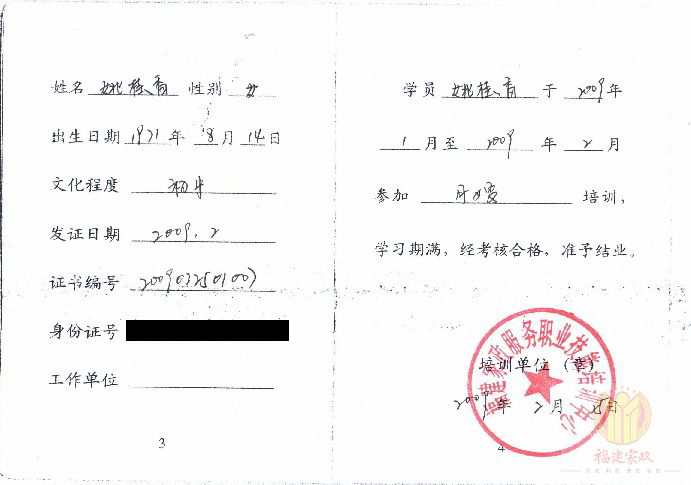 姓名 姚桂香 性别 女
出生日期 1971 年 8 月 14 日
文化程度 初中
发证日期 2009.2
证书编号
身份证号
工作单位
3
学员 姚桂香 于 2009 年
1 月至 2009 年 2 月
参加 培训，
学习期满，经考核合格，准予结业。
培训单位（章）
福建家政服务职业技能培训中心
2009 年 2 月 日
4
福建家政